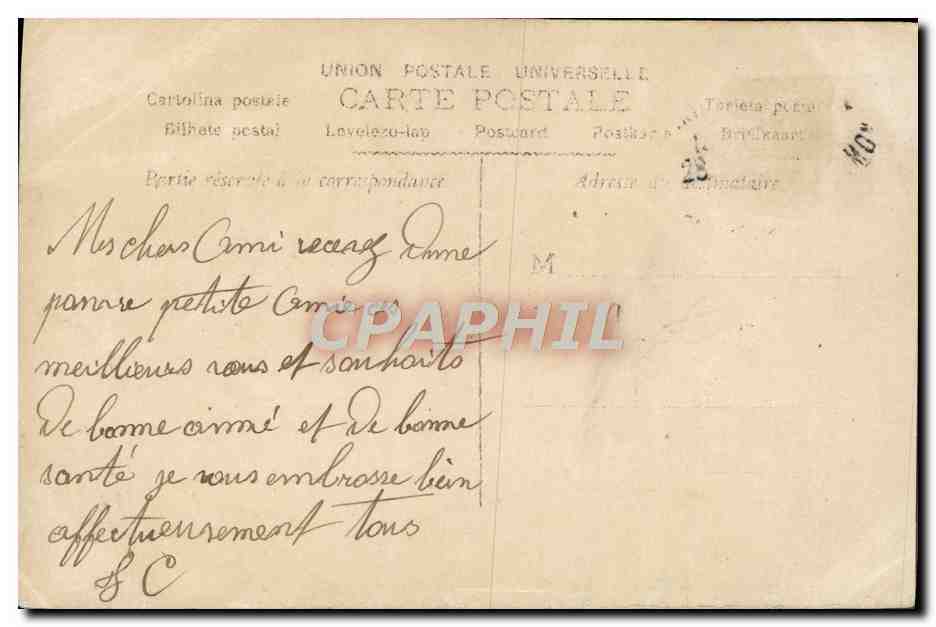 UNION POSTALE UNIVERSELLE
Cartolina postale CARTE POSTALE Tarjeta postal
Bilhete postal Levelezo-lap Postcard Postkarte Briefkaart
Partie réservée à la correspondance Adresse du destinataire
M
28 NOV
Mes chers Ami recevez d'une
pauvre petite Amie ces
meilleurs vœus et souhaits
de bonne anné et de bonne
santé je vous embrasse bien
affectueusement tous
C
CPAPHIL